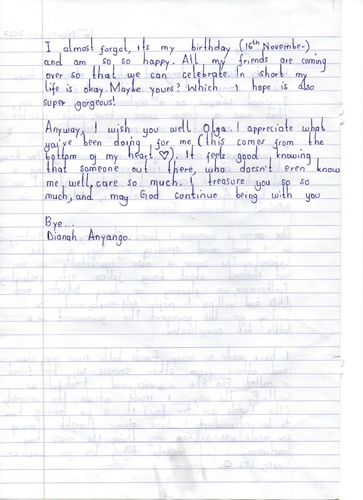 I almost forgot, its my birthday (16th November)
and am so so happy. All my friends are coming
over so that we can celebrate. In short my
life is okay. Maybe yours? Which I hope is also
super gorgeous!
Anyway, I wish you well Olga. I appreciate what
you've been doing for me, (this comes from the
bottom of my heart ♡). It feels good knowing
that someone out there, who doesn't even know
me well, care so much. I treasure you so so
much, and may God continue being with you
Bye...
Dianah Anyango.